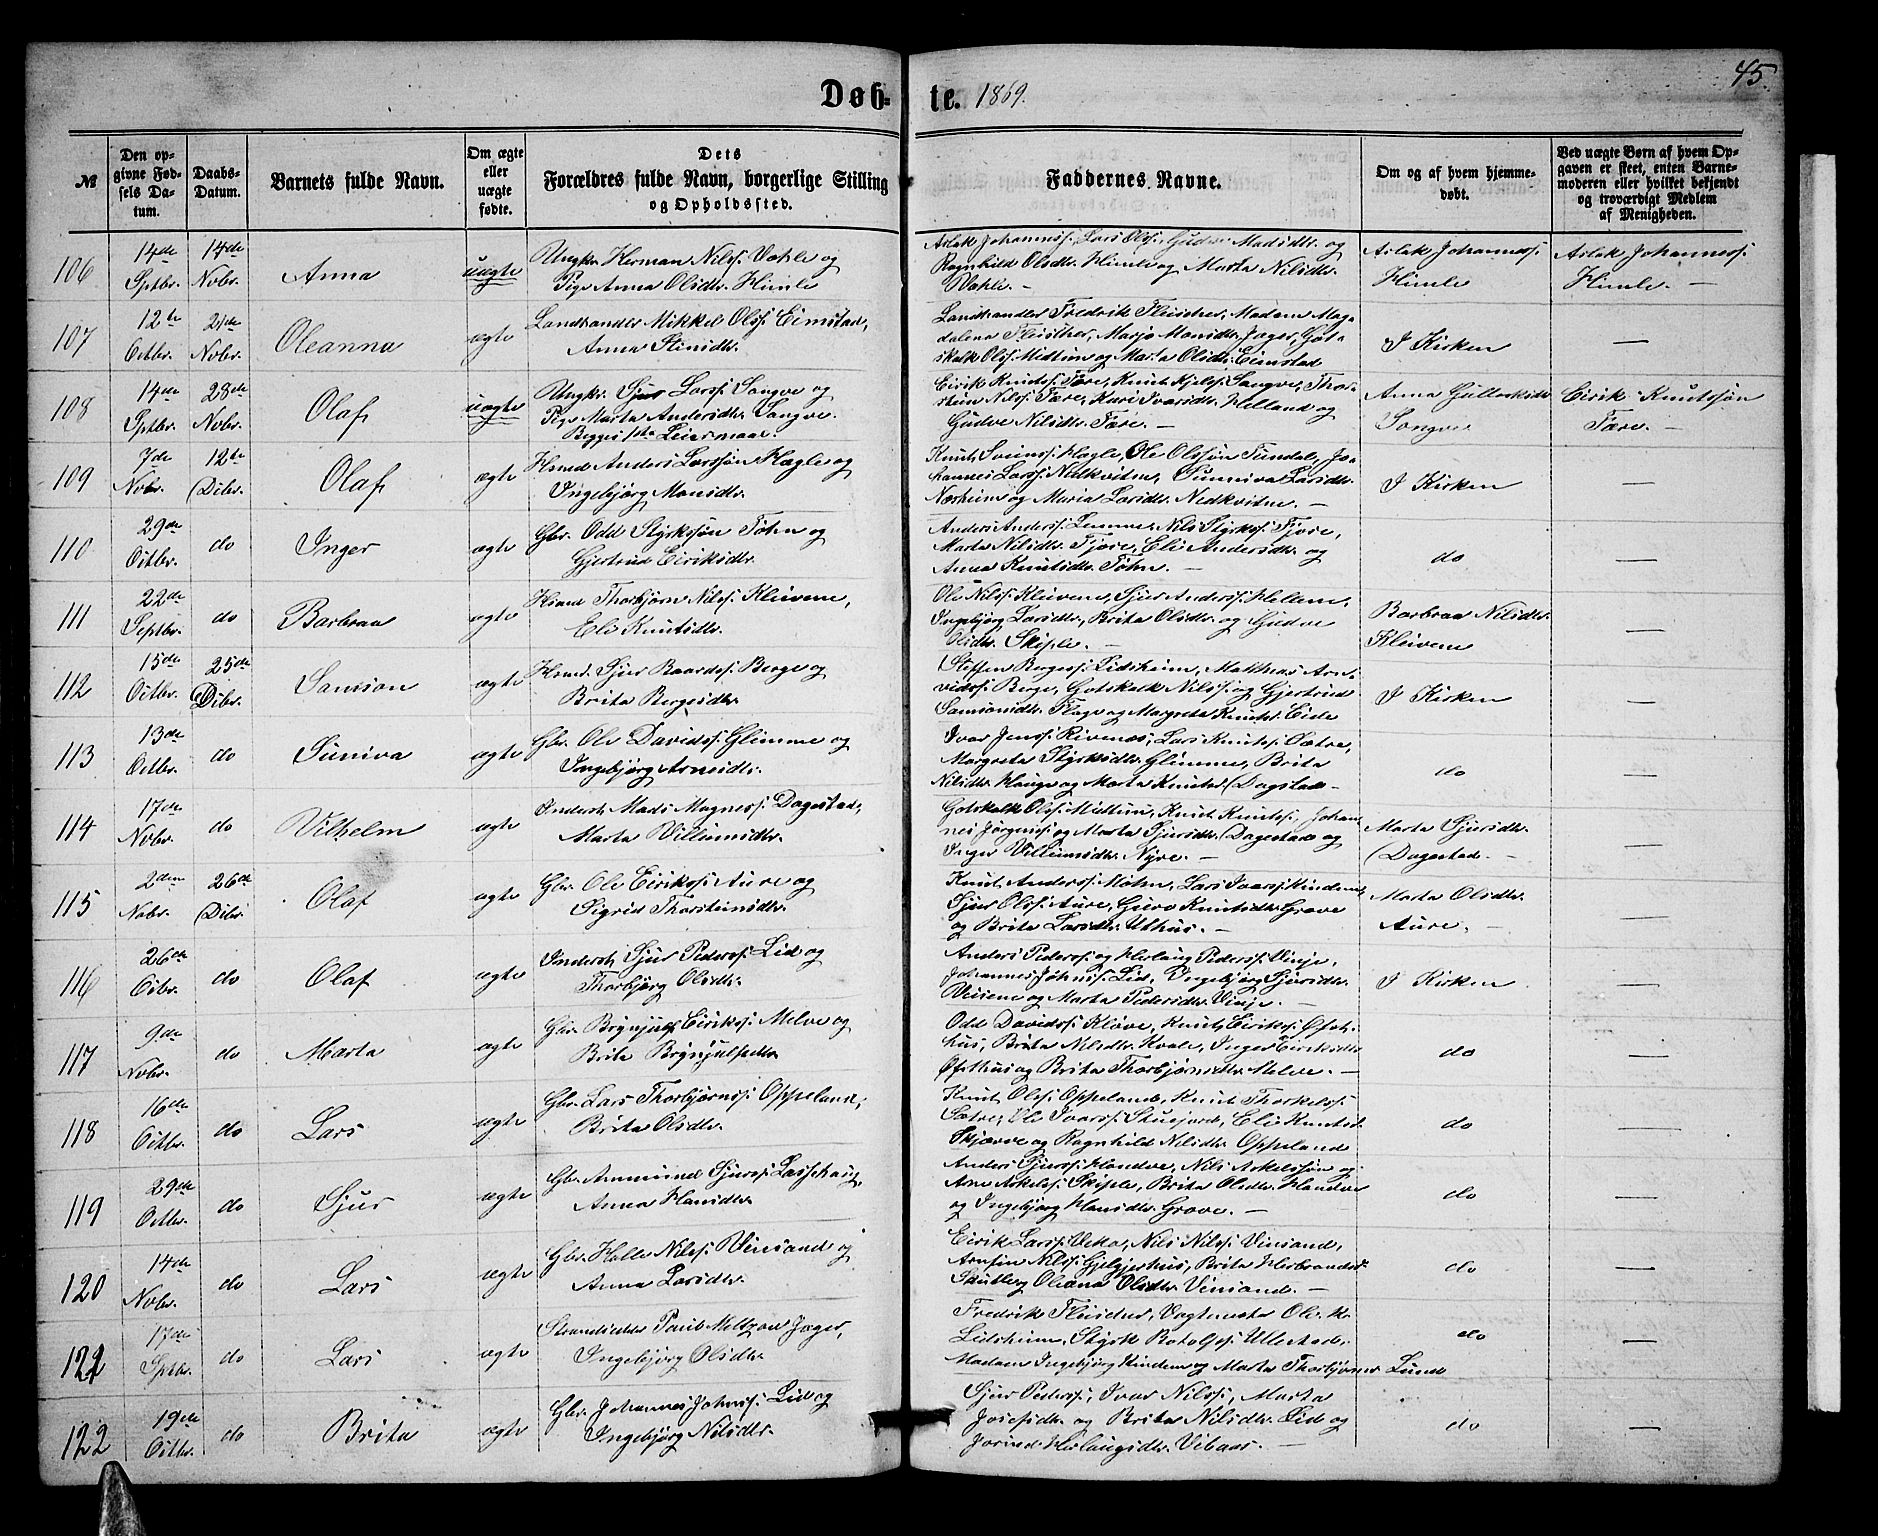 45.
Døb-te. 1869.
№
Den opgivne Fødsels Datum.
Daabs-Datum.
Barnets fulde Navn.
Om ægte eller uægte fødte.
Dets Forældres fulde Navn, borgerlige Stilling og Opholdssted.
Faddernes Navne.
Om og af hvem hjemmedøbt.
Ved uægte Børn af hvem Opgaven er skeet, enten Barnemoderen eller hvilket bekjendt og troværdigt Medlem af Menigheden.
106 14de Sptbr. 14de Nobr. Anna uægte
Ungkr. Herman Nilss: Væhle og
Pige Anna Olsdtr. Himle
Aslak Johanness:, Lars Olss:, Gudve Madsdtr. og
Ragnhild Olsdtr. Himle og Marta Nilsdtr.
Væhle. —
Aslak Johanness:
Himle
Aslak Johanness:
Himle. —
107 12te Octbr. 21de Nobr. Oleanna ægte
Landhandler Mikkel Olss: Eimstad,
Anna Stensdtr.
Landhandler Fredrik Fleischer, Madam Mag-
dalena Fleischer, Marjo Monsdtr. Jager, Gots-
kalk Olss: Midtun og Marta Olsdtr. Eimstad
I Kirken —
108 14de Sptbr. 28de Nobr. Olaf uægte
Ungkr. Sjur Larss: Songve og
Pige Marta Andersdtr. Songve.
Begges 1ste Leiermaal.
Eirik Knutss: Fære, Knut Kjelss: Songve, Thor-
stein Nilss: Fære, Kari Ivarsdtr. Helland og
Gudve Nilsdtr. Fære. —
Anna Gulleiksdtr.
Songve
Eirik Knutssøn
Fære. —
109 7de Nobr. 12te Dcbr. Olaf ægte
Hsmd. Anders Larssøn Hægle og
Ingebjørg Monsdtr.
Knut Sveinss: Hægle, Ole Olssøn Fundal, Jo-
hannes Larss: Nedkvitne, Sunniva Larsdtr.
Næsheim og Maria Larsdtr. Nedkvitne. —
I Kirken —
110 29de Octbr. do Inger ægte
Gbr. Odd Styrkssøn Føhn og
Gjertrud Eiriksdtr.
Anders Anderss: Lemme, Nils Styrkss: Fjøre,
Marta Nilsdtr. Fjøre, Eli Andersdtr. og
Anna Knutsdtr. Føhn. —
do —
111 22de Septbr. do Barbraa ægte
Hsmd Thorbjørn Nilss: Kleivene,
Eli Knutsdtr.
Ole Nilss: Kleivene, Sjur Anderss: Hellene,
Ingebjørg Larsdtr., Brita Olsdtr. og Gudve
Olsdtr. Skiple. —
Barbraa Nilsdtr.
Kleivene —
112 15de Octbr. 25de Dcbr. Samson ægte
Hsmd. Sjur Baardss: Berge og
Brita Bergesdtr.
Steffen Bergess: Lidsheim, Matthias Arn-
vidss: Berge, Gotskalk Nilss: og Gjertrud
Samsonsdtr. Flage og Margreta Knutsd. Eide
I Kirken —
113 13de Octbr. do Suniva ægte
Gbr. Ole Davidss: Glimme og
Ingebjørg Arnesdtr.
Ivar Jenss: Rivenes, Lars Knutss: Sætre,
Margreta Styrksdtr. Glimme, Brita
Nilsdtr. Hauge og Marta Knutsd. Dagstad —
do —
114 17de Nobr. do Vilhelm ægte
Inderst Mads Magness: Dagestad,
Marta Villumsdtr.
Gotskalk Olss: Mittun, Knut Knutss:, Johan-
nes Jørgenss: og Marta Sjursdtr. Dagestad og
Inger Villumsdtr. Nyre. —
Marta Sjursdtr.
Dagestad. — —
115 2den Nobr. 26de Dcbr. Olaf ægte
Gbr. Ole Eirikss: Aure og
Sigrid Thorsteinsdtr.
Knut Anderss: Møhn, Lars Ivarss: Kindem,
Sjur Olss: Aure, Guro Knutsdtr. Grove
og Brita Larsdtr. Uthus. —
Marta Olsdtr.
Aure. — —
116 26de Ocbr. do Olaf ægte
Inderst Sjur Pederss: Lid og
Thorbjørg Olsdtr.
Anders Pederss: og Herlaug Pederss: Vinje,
Johannes Johnss: Lid, Ingebjørg Sjursdtr.
og Marta Pedersdtr. Vinje. —
I Kirken —
117 9de Nobr. do Marta ægte
Gbr. Brynjulf Eirikss: Melve og
Brita Brynjulfsdtr.
Odd Davidss: Kløve, Knut Eirikss: Øfst-
hus, Brita Nilsdtr. Hvale, Inger Eiriksdtr.
Øfsthus og Brita Thorbjørnsdtr. Melve. —
do —
118 16de Octbr. do Lars ægte
Gbr. Lars Thorbjørnss: Oppeland,
Brita Olsdtr.
Knut Olss: Oppeland, Knut Thorkelss:
Sætre, Ole Ivarss: Skusjord, Eli Knutsd.
Skjærve og Ragnhild Nilsdtr. Oppeland
do —
119 29de Octbr. do Sjur ægte
Gbr. Ammund Sjurss: Lassehaug,
Anna Hansdtr.
Anders Sjurss: Handve, Nils Askelssøn og
Arne Askelss: Skiple, Brita Olsdtr. Handve
og Ingebjørg Hansdtr. Grove. —
do —
120 14de Nobr. do Lars ægte
Gbr. Halle Nilss: Vinsand og
Anna Larsdtr.
Eirik Larss: Veka, Nils Nilss: Vinsand,
Arnfin Nilss: Gjelgjerhus, Brita Herbrandsd.
Skutle og Oleana Olsdtr. Vinsand. —
do —
121 17de Sptbr. do Lars ægte
Strandsidder Paul Meltzon Jager,
Ingebjørg Olsdtr.
Fredrik Fleischer, Vagtmester Ole K.
Lidsheim, Styrk Rotolfss: Ullestad,
Madam Ingebjørg Kindem og Marta Thorbjørnsd. Lund
do —
122 19de Octbr. do Brita ægte
Gbr. Johannes Johnss: Lid og
Ingebjørg Nilsdtr.
Sjur Pederss:, Ivar Nilss:, Marta
Josefsdtr. og Brita Nilsdtr. Lid og
Jorind Herlaugsdtr. Vibaas. —
do —